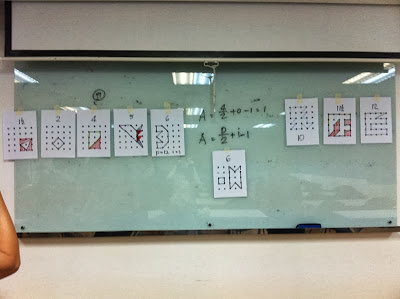 1½ 2 4 5 6
A = B/2 + 0 - 1 = 1
A = B/2 + i - 1
6
10 11½ 12